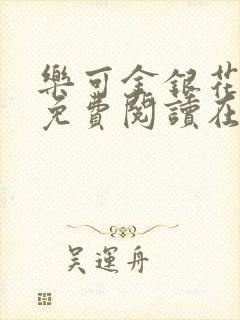 樂可金銀花
免費閱讀在
吳運舟